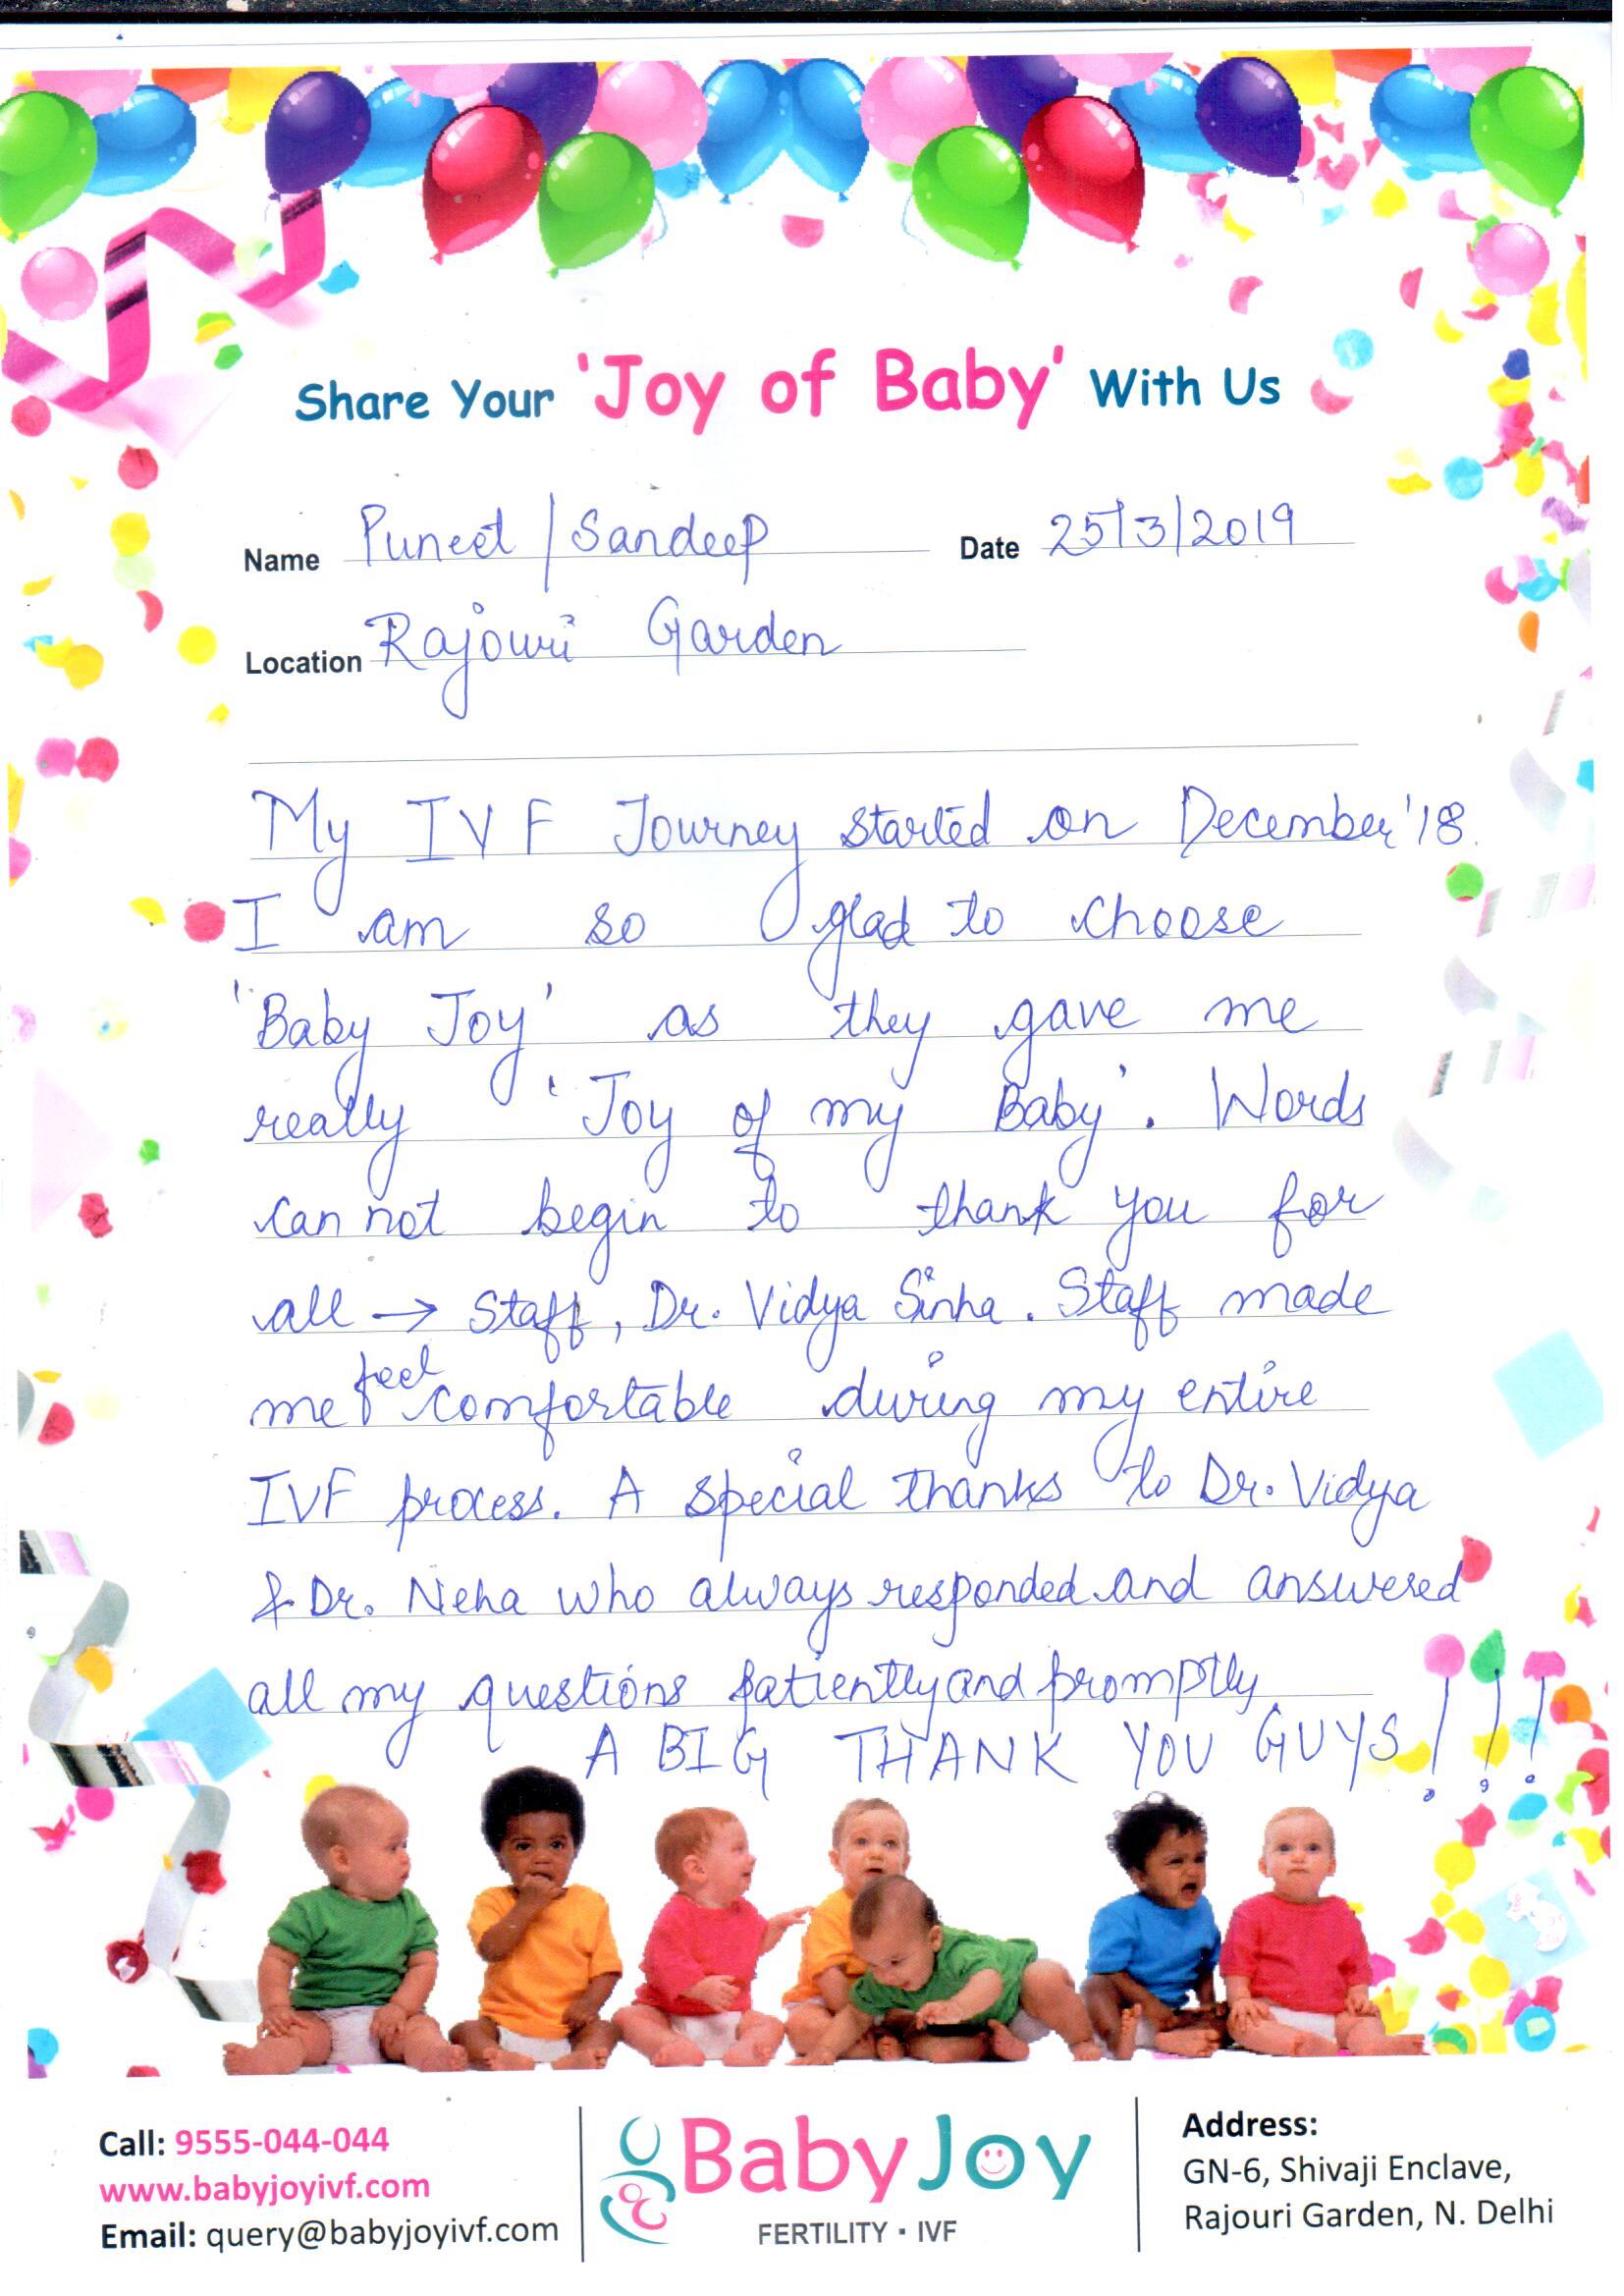 Share Your 'Joy of Baby' With Us
Name Puneet / Sandeep Date 25/3/2019
Location Rajouri Garden
My IVF Journey started on December '18.
I am so glad to choose
'Baby Joy' as they gave me
really 'Joy of my Baby'. Words
can not begin to thank you for
all → Staff, Dr. Vidya Sinha. Staff made
me feel comfortable during my entire
IVF process. A special thanks to Dr. Vidya
& Dr. Neha who always responded and answered
all my questions patiently and promptly
A BIG THANK YOU GUYS!!!
Call: 9555-044-044
www.babyjoyivf.com
Email: query@babyjoyivf.com
Baby Joy
FERTILITY • IVF
Address:
GN-6, Shivaji Enclave,
Rajouri Garden, N. Delhi